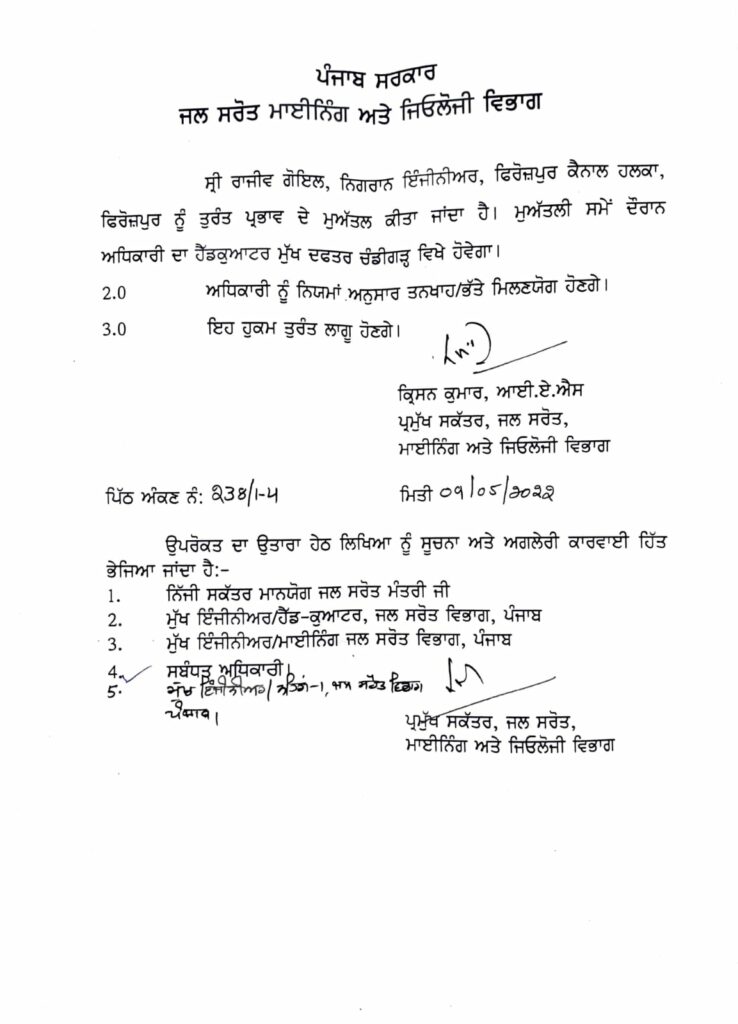 ਪੰਜਾਬ ਸਰਕਾਰ
ਜਲ ਸਰੋਤ ਮਾਈਨਿੰਗ ਅਤੇ ਜਿਓਲੋਜੀ ਵਿਭਾਗ
ਸ੍ਰੀ ਰਾਜੀਵ ਗੋਇਲ, ਨਿਗਰਾਨ ਇੰਜੀਨੀਅਰ, ਫਿਰੋਜ਼ਪੁਰ ਕੈਨਾਲ ਹਲਕਾ,
ਫਿਰੋਜ਼ਪੁਰ ਨੂੰ ਤੁਰੰਤ ਪ੍ਰਭਾਵ ਦੇ ਮੁਅੱਤਲ ਕੀਤਾ ਜਾਂਦਾ ਹੈ। ਮੁਅੱਤਲੀ ਸਮੇਂ ਦੌਰਾਨ
ਅਧਿਕਾਰੀ ਦਾ ਹੈੱਡਕੁਆਟਰ ਮੁੱਖ ਦਫਤਰ ਚੰਡੀਗੜ੍ਹ ਵਿਖੇ ਹੋਵੇਗਾ।
2.0 ਅਧਿਕਾਰੀ ਨੂੰ ਨਿਯਮਾਂ ਅਨੁਸਾਰ ਤਨਖਾਹ/ਭੱਤੇ ਮਿਲਣਯੋਗ ਹੋਣਗੇ।
3.0 ਇਹ ਹੁਕਮ ਤੁਰੰਤ ਲਾਗੂ ਹੋਣਗੇ।
ਕ੍ਰਿਸਨ ਕੁਮਾਰ, ਆਈ.ਏ.ਐਸ
ਪ੍ਰਮੁੱਖ ਸਕੱਤਰ, ਜਲ ਸਰੋਤ,
ਮਾਈਨਿੰਗ ਅਤੇ ਜਿਓਲੋਜੀ ਵਿਭਾਗ
ਪਿੱਠ ਅੰਕਣ ਨੰ: 238/1-5 ਮਿਤੀ 09/05/2022
ਉਪਰੋਕਤ ਦਾ ਉਤਾਰਾ ਹੇਠ ਲਿਖਿਆ ਨੂੰ ਸੂਚਨਾ ਅਤੇ ਅਗਲੇਰੀ ਕਾਰਵਾਈ ਹਿੱਤ
ਭੇਜਿਆ ਜਾਂਦਾ ਹੈ:-
1. ਨਿੱਜੀ ਸਕੱਤਰ ਮਾਨਯੋਗ ਜਲ ਸਰੋਤ ਮੰਤਰੀ ਜੀ
2. ਮੁੱਖ ਇੰਜੀਨੀਅਰ/ਹੈੱਡ-ਕੁਆਟਰ, ਜਲ ਸਰੋਤ ਵਿਭਾਗ, ਪੰਜਾਬ
3. ਮੁੱਖ ਇੰਜੀਨੀਅਰ/ਮਾਈਨਿੰਗ ਜਲ ਸਰੋਤ ਵਿਭਾਗ, ਪੰਜਾਬ
4. ਸਬੰਧਤ ਅਧਿਕਾਰੀ।
5. ਮੁੱਖ ਇੰਜੀਨੀਅਰ/ ਜਲ ਸਰੋਤ ਵਿਭਾਗ
ਪੰਜਾਬ।
ਪ੍ਰਮੁੱਖ ਸਕੱਤਰ, ਜਲ ਸਰੋਤ,
ਮਾਈਨਿੰਗ ਅਤੇ ਜਿਓਲੋਜੀ ਵਿਭਾਗ